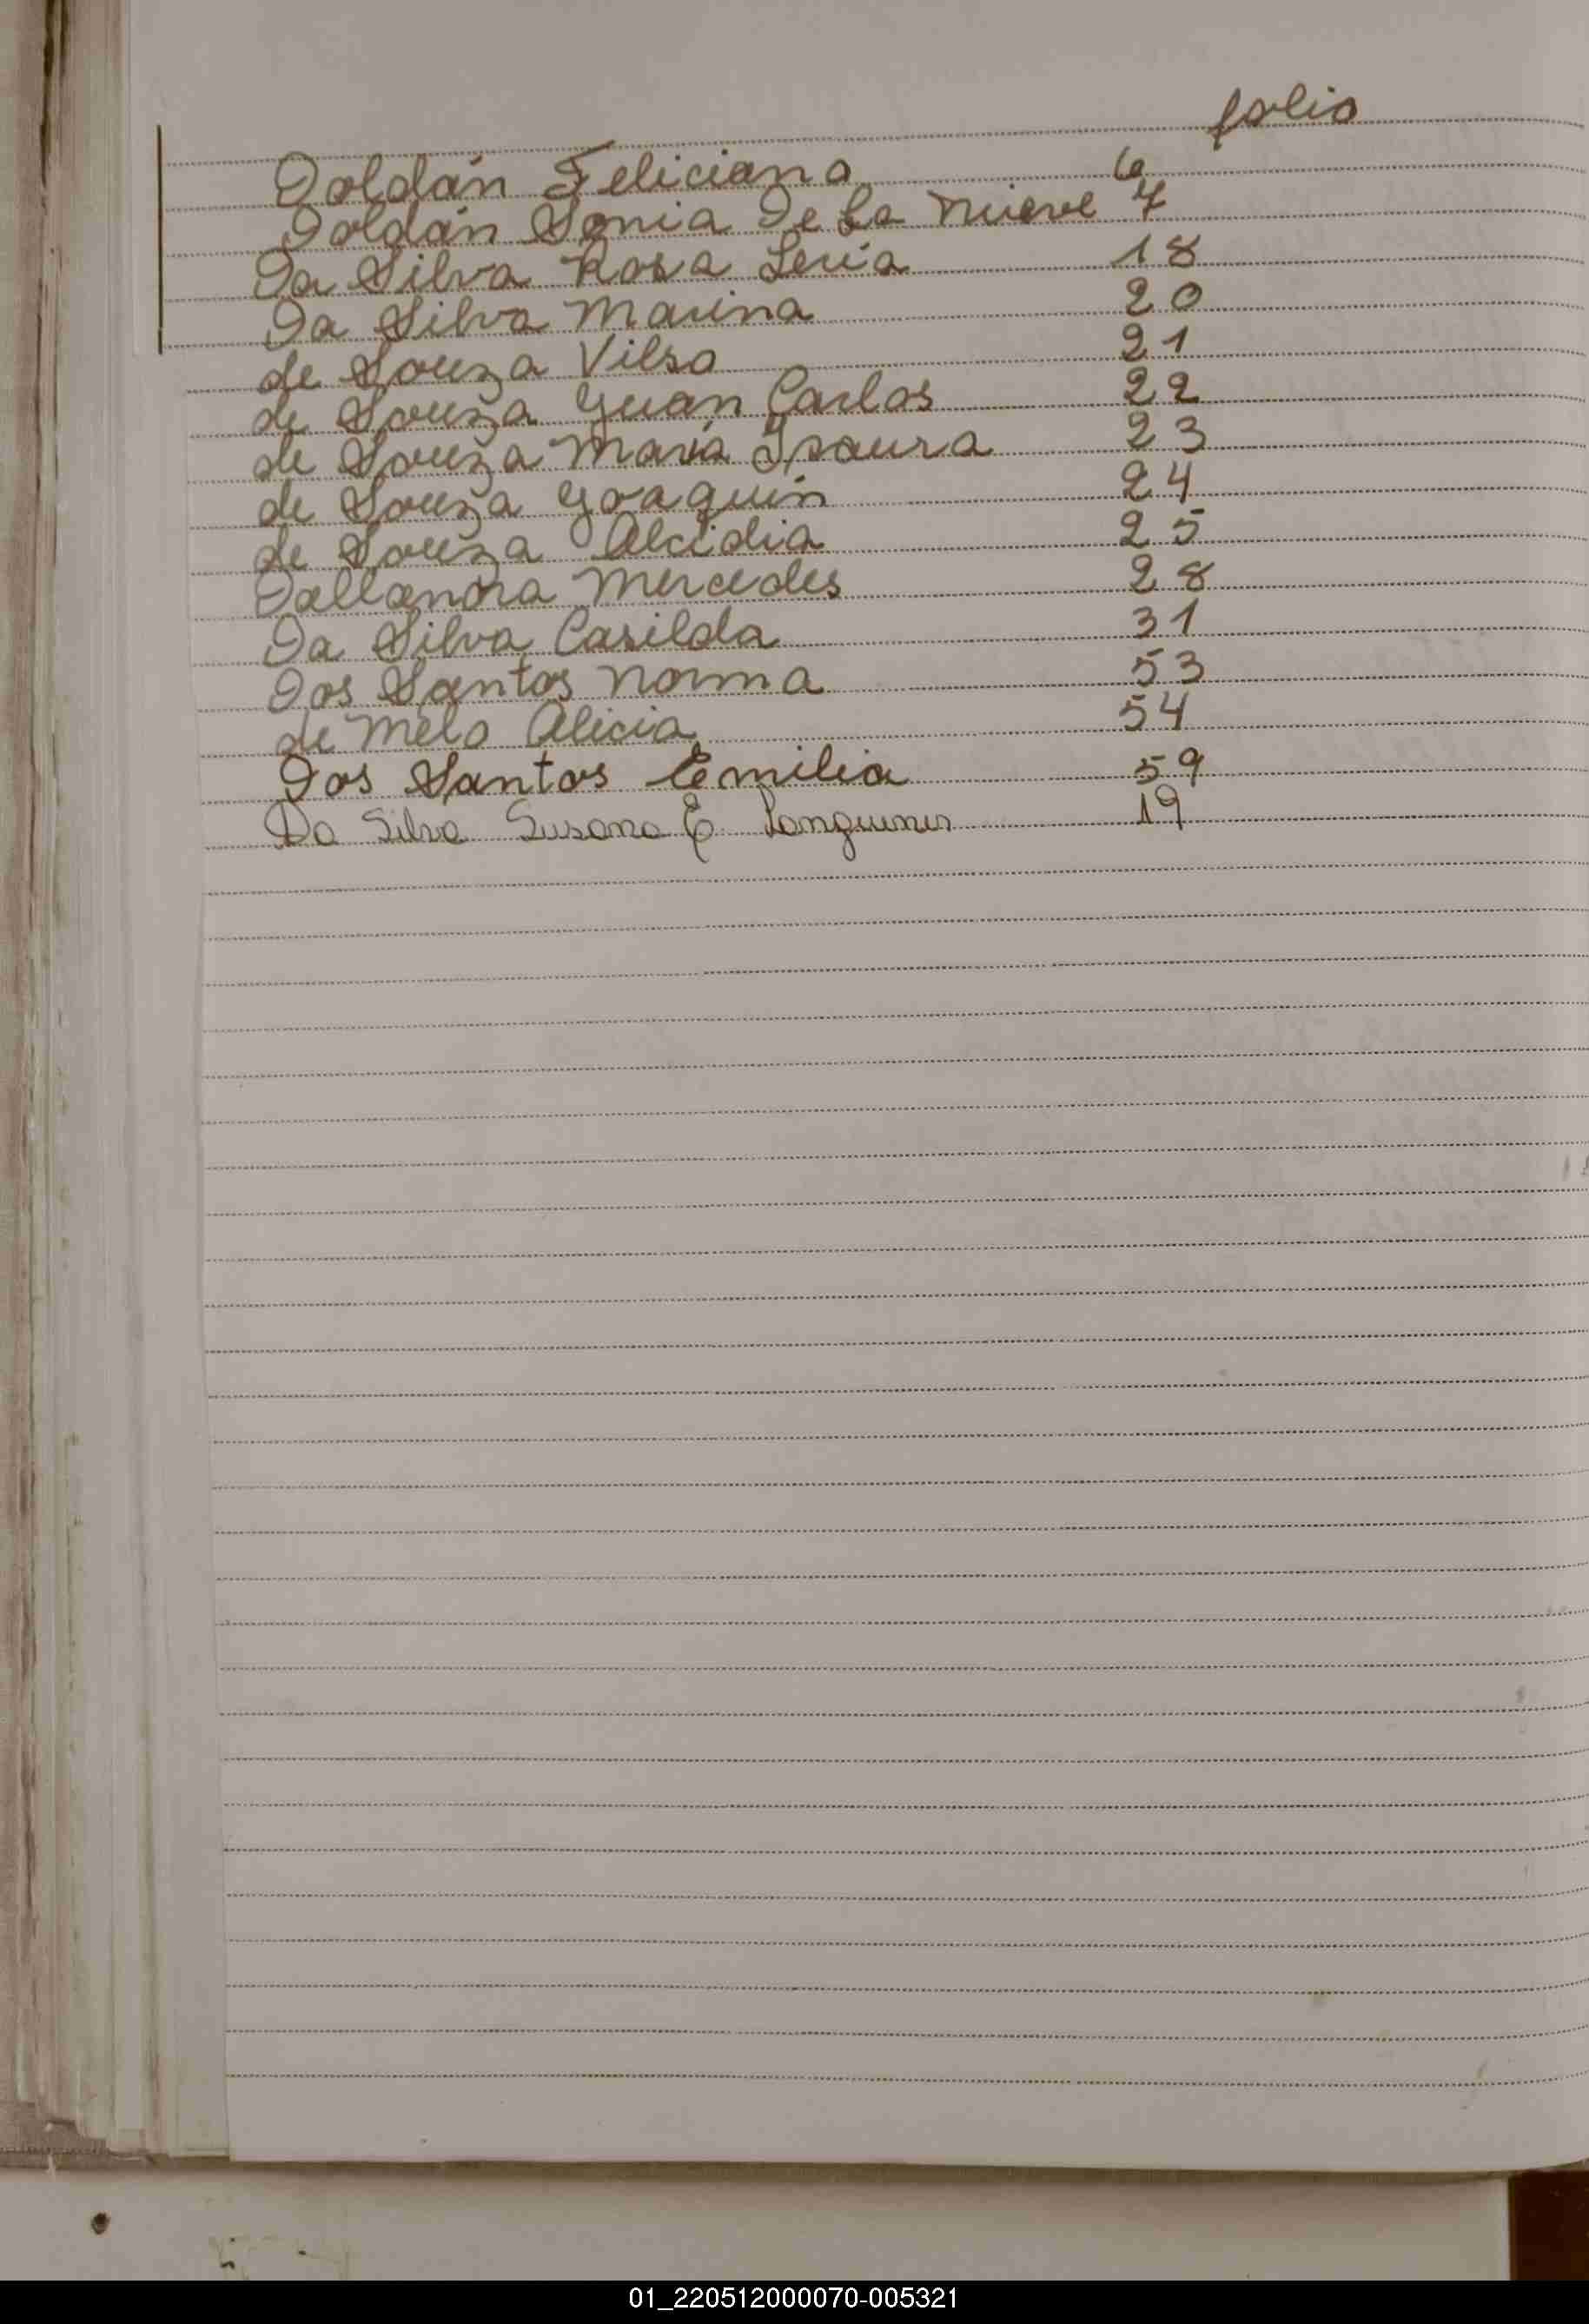 folio
Doldán Feliciana 6
Doldán Sonia De la Nieve 7
Da Silva Rosa Leria 18
Da Silva Marina 20
de Souza Vilso 21
de Souza Juan Carlos 22
de Souza María Isaura 23
de Souza Joaquín 24
de Souza Alcidia 25
Dallanora Mercedes 28
Da Silva Casilda 31
Dos Santos Norma 53
de Melo Alicia 54
Dos Santos Emilia 59
Da Silva Susana E. 19
01_220512000070-005321